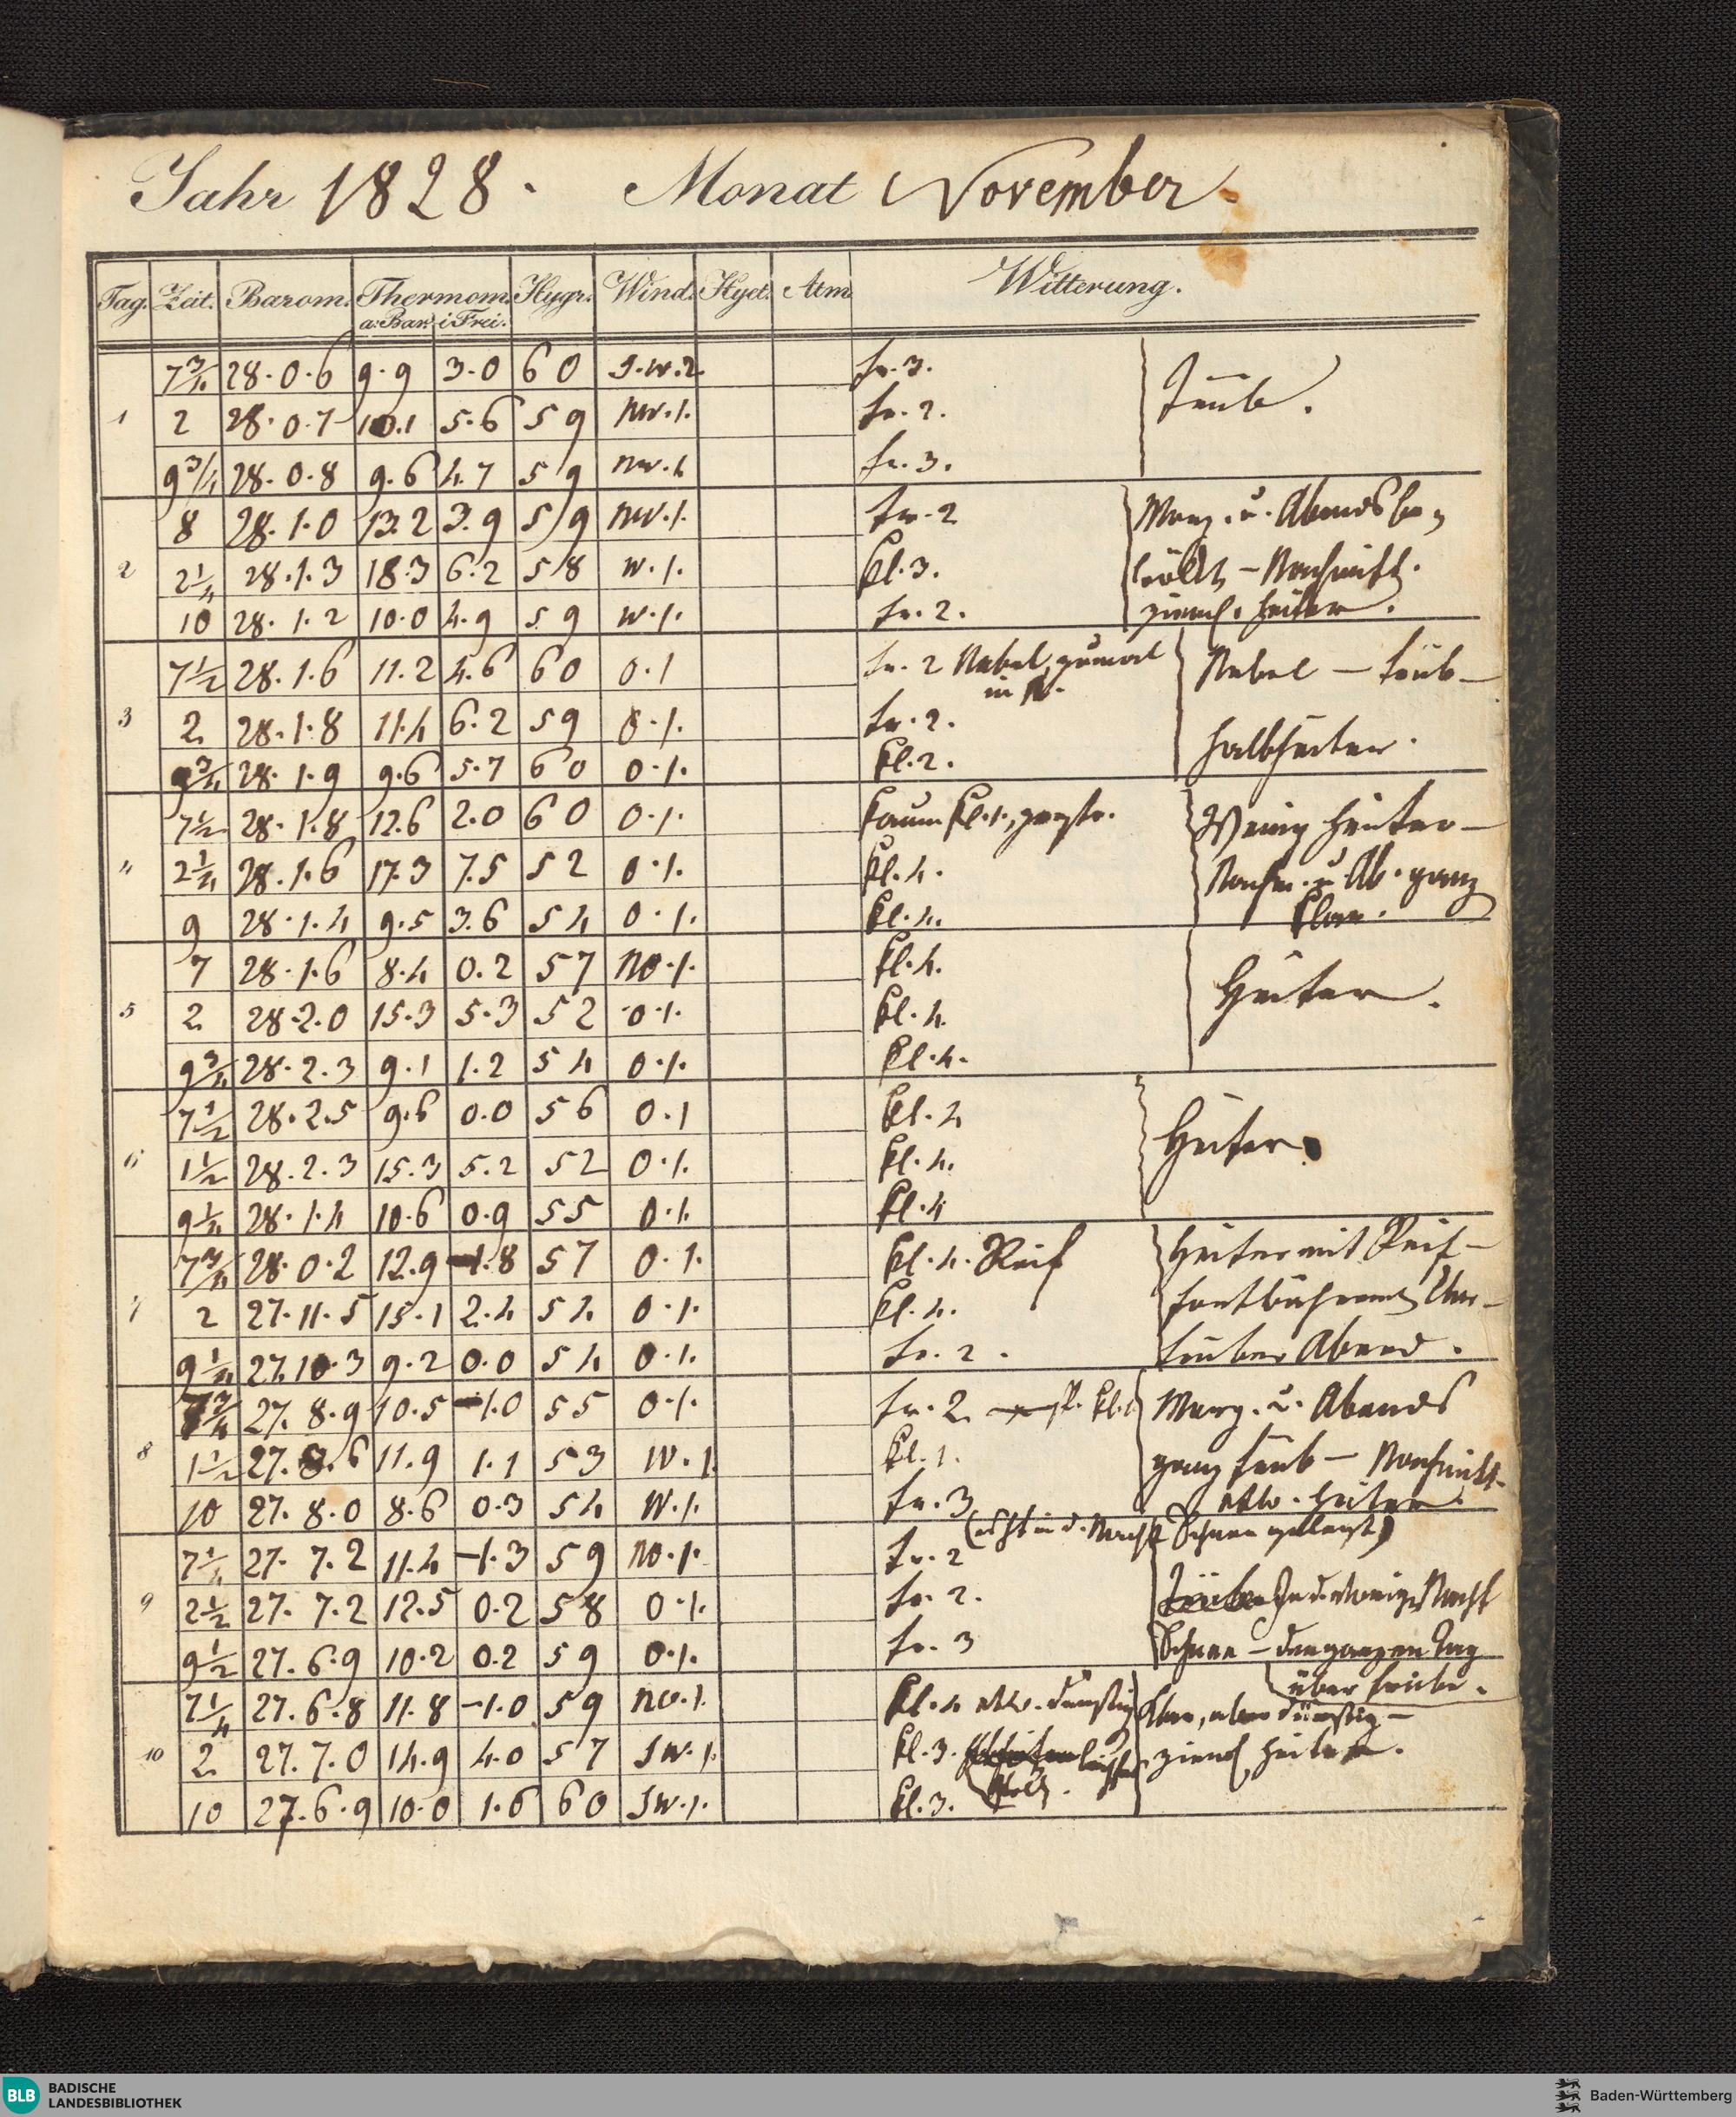 Jahr 1828. Monat November.
Tag. Zeit. Barom. Thermom. Hygr. Wind. Hyet. Atm. Witterung.
a. Bar. i. Frei.
7 3/4 28.0.6 9.9 3.0 60 S.W.2. tr.3.
1 2 28.0.7 10.1 5.6 59 NW.1. tr.2. Trüb.
9 3/4 28.0.8 9.6 4.7 59 NW.1. tr.3.
8 28.1.0 13.2 3.9 59 NW.1. tr.2 Morg. u. Abends be-
2 2 1/4 28.1.3 18.3 6.2 58 W.1. kl.3. wölkt – Nachmitt.
10 28.1.2 10.0 4.9 59 W.1. tr.2. zieml. heiter.
7 1/2 28.1.6 11.2 4.6 60 O.1 tr.2 Nebel, zumal Nebel – trüb –
in
3 2. 28.1.8 11.4 6.2 59 O.1. tr.2.
9 3/4 28.1.9 9.6 5.7 60 O.1. kl.2. halbheiter.
7 1/2 28.1.8 12.6 2.0 60 O.1. kaum kl.1., Wenig heiter –
4 2 1/4 28.1.6 17.3 7.5 52 O.1. kl.4. Nachm. u. Ab. ganz
9 28.1.4 9.5 3.6 54 O.1. kl.4. klar.
7 28.1.6 8.4 0.2 57 NO.1. kl.4.
5 2. 28.2.0 15.3 5.3 52 O.1. kl.4. Heiter.
9 3/4 28.2.3 9.1 1.2 54 O.1. kl.4.
7 1/2 28.2.5 9.6 0.0 56 O.1 kl.4
6 1 1/2 28.2.3 15.3 5.2 52 O.1. kl.4. Heiter.
9 1/4 28.1.4 10.6 0.9 55 O.1. kl.4
7 3/4 28.0.2 12.9 -1.8 57 O.1. kl.4. Reif Heiter mit Reif –
7 2 27.11.5 15.1 2.4 54 O.1. kl.4.
9 1/4 27.10.3 9.2 0.0 54 O.1. tr.2. trüber Abend.
7 3/4 27.8.9 10.5 -1.0 55 O.1. tr.2. Morg. u. Abends
8 1 1/2 27.8.6 11.9 1.1 53 W.1. kl.1. ganz trüb – Nachmitt.
10 27.8.0 8.6 0.3 54 W.1. tr.3 etw. heiter.
(es ist in d. Nacht Schnee gelegt)
7 1/4 27.7.2 11.4 -1.3 59 NO.1. tr.2
9 2 1/2 27.7.2 12.5 0.2 58 O.1. tr.2. In d. vorig. Nacht
9 1/2 27.6.9 10.2 0.2 59 O.1. tr.3 Schnee – den ganzen Tag
über trübe.
7 1/4 27.6.8 11.8 -1.0 59 NO.1. kl.4 etw. dunstig Klar, aber dunstig –
10 2. 27.7.0 14.9 4.0 57 SW.1. kl.3. leichte zieml. heiter.
10 27.6.9 10.0 1.6 60 SW.1. kl.3.
BLB BADISCHE
LANDESBIBLIOTHEK
Baden-Württemberg